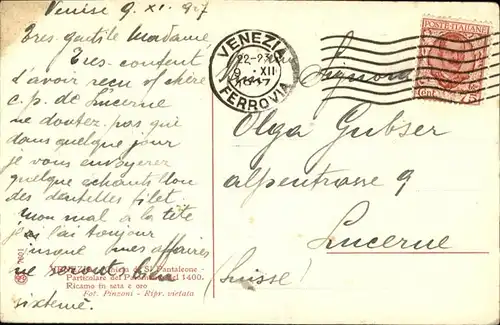 Venise 9. XI. 927
Très gentile Madame
Très content
d'avoir reçu v/ chère
c.p. de Lucerne
ne doutez pas qui
dans quelque jour
je vous envoyerez
quelque échantillon
des dentelles filet.
mon mal à la tête
je l'ai toujour
mes affaires
ne seront bien
sixtemé.
VENEZIA
22-23
XII
FERROVIA
POSTE ITALIANE
Cent. 75
Signora
Olga Gubser
alpenstrasse 9
Lucerne
(Suisse)
7601
VENEZIA - Chiesa di S. Pantaleone -
Particolare del del 1400.
Ricamo in seta e oro
Fot. Pinzoni - Ripr. vietata